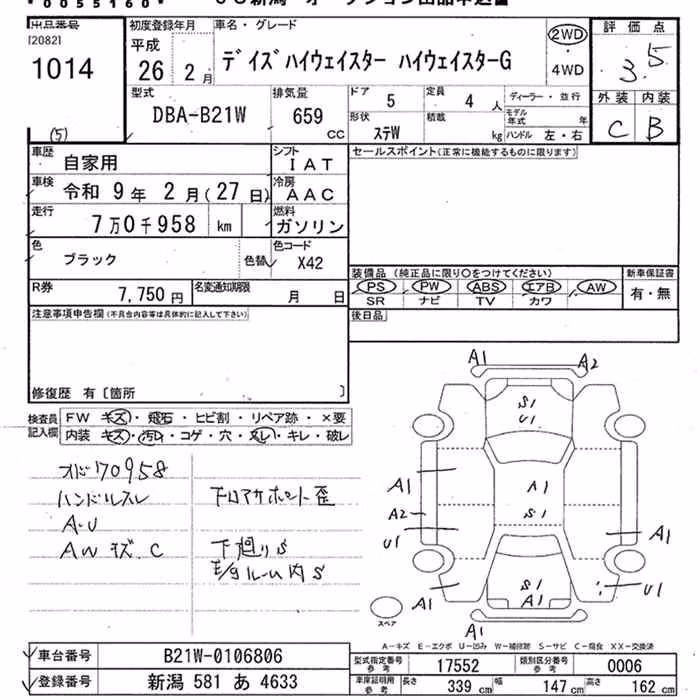 *0055160*
ＵＳ新潟 オークション出品申込書
出品番号 初度登録年月 車名・グレード 評価点
I20821
1014
(5)
平成 26年 2月
デイズハイウェイスター ハイウェイスターG
2WD・4WD
3.5
外装 内装
C B
型式 排気量 ドア 5 定員 4人 ディーラー・並行
DBA-B21W 659 CC
形状 ステW 積載 kg モデル年式 年
ハンドル 左・右
車歴 自家用 シフト IAT
セールスポイント(正常に機能するものに限ります)
車検 令和 9年 2月(27日) 冷房 AAC
走行 7万0千958 km 燃料 ガソリン
色 ブラック 色替 色コード X42
装備品 (純正品に限り○をつけてください) 新車保証書
PS PW ABS エアB AW 有・無
SR ナビ TV カワ
R券 7,750円 名変通知期限 月 日
後日品
注意事項申告欄(不具合内容等は具体的に記入して下さい)
修復歴 有〔箇所 〕
検査員記入欄
FW キズ・飛石・ヒビ割・リペア跡・×要
内装 キズ・汚れ・コゲ・穴・スレ・キレ・破レ
オド70958
ハンドルスレ 下ロアサポート歪
A・U
AW キズ、C 下廻りS
E/gルーム内S
A1 A2
S1
U1
A1 A1
A2 S1
U1 A1
S1 U1
A1 A1
A1
スペア
A−キズ E−エクボ U−凹み W−補修跡 S−サビ C−腐食 XX−交換済
車台番号 B21W-0106806
型式指定番号 参考 17552 類別区分番号 参考 0006
登録番号 新潟 581 あ 4633
車庫証明用 参考 長さ 339 cm 幅 147 cm 高さ 162 cm